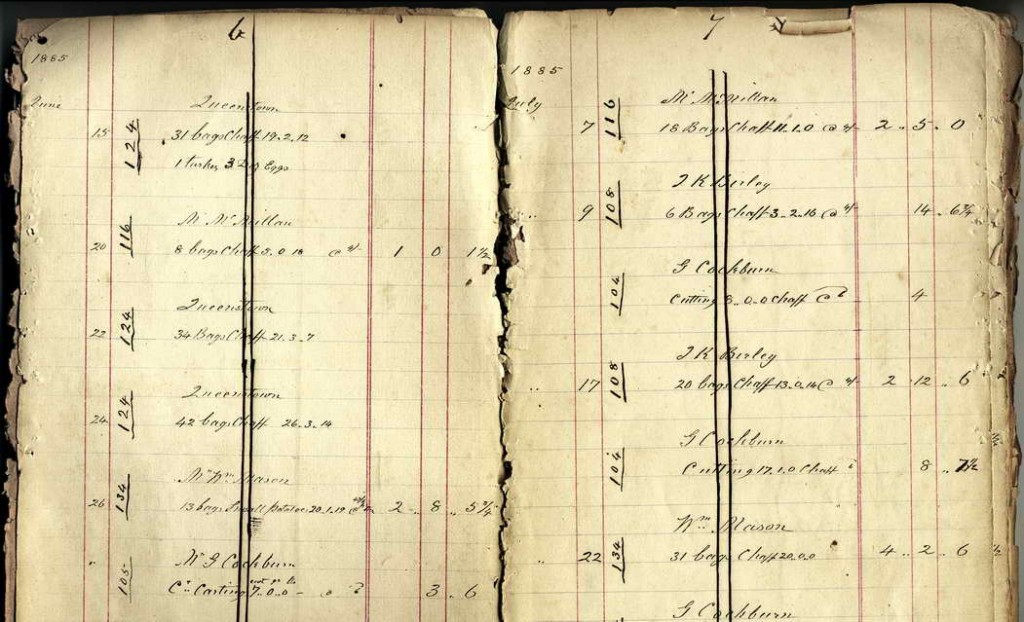 6
1885
June
Queenstown
15 124 31 bags Chaff 19.2.12
1 turkey 3 Doz Eggs
Mr McMillan
20 116 8 bags Chaff 5.0.18 @ 1 0 1½
Queenstown
22 124 34 Bags Chaff 21.3.7
Queenstown
24 124 42 bags Chaff 26.3.14
Mr Wm Mason
26 134 13 bags Small Potatoes 20.1.19 @ 2 .. 8 .. 5¾
Mr G Cockburn
" 105 Carting 7.0.0 3 .. 6
7
1885
July
Mr McMillan
7 116 18 Bags Chaff 11.1.0 @ 2 .. 5 .. 0
J K Birley
" 9 108 6 Bags Chaff 3.2.16 @ 14 .. 6¾
G Cockburn
104 Cutting 8.0.0 Chaff @ 4
J K Birley
" 17 108 20 bags Chaff 13.0.14 @ 2 .. 12 .. 6
G Cockburn
104 Cutting 17.1.0 Chaff 8 .. 7½
Wm Mason
" 22 134 31 bags Chaff 20.0.0 4 .. 2 .. 6
G Cockburn